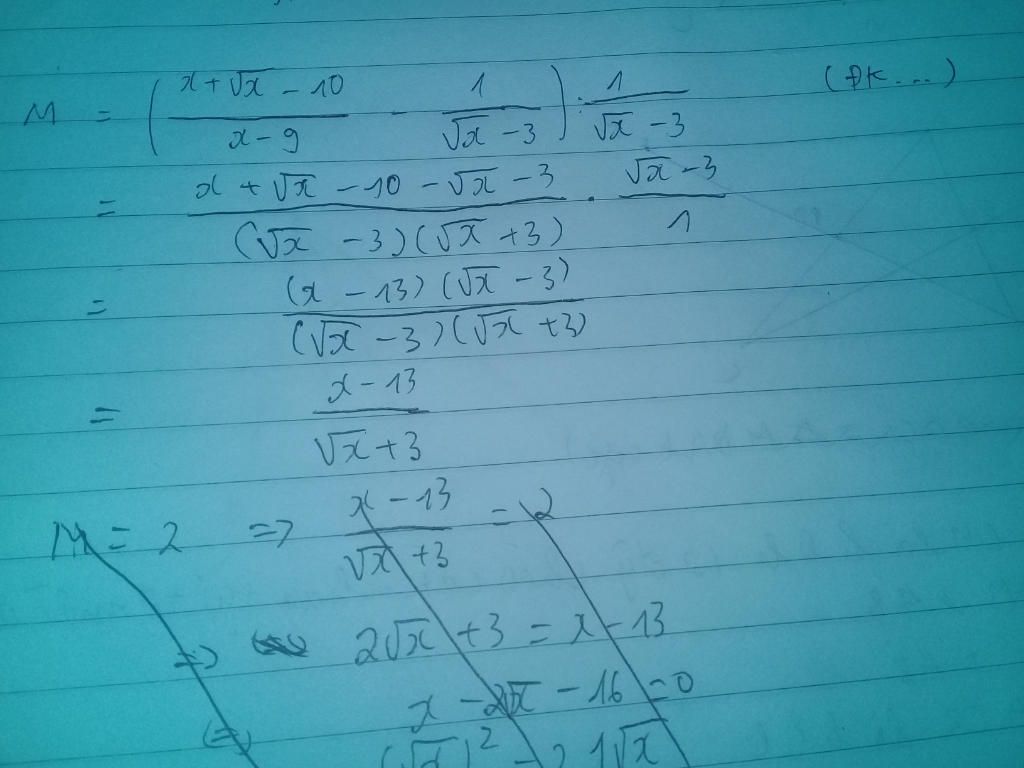 M = ( (x + √x − 10)/(x − 9) − 1/(√x − 3) ) : 1/(√x − 3) (ĐK...)
= (x + √x − 10 − √x − 3)/((√x − 3)(√x + 3)) . (√x − 3)/1
= ((x − 13)(√x − 3))/((√x − 3)(√x + 3))
= (x − 13)/(√x + 3)
M = 2 => (x − 13)/(√x + 3) = 2
=> 2√x + 3 = x − 13
(=) x − 2√x − 16 = 0
(√x)² − 2 1√x